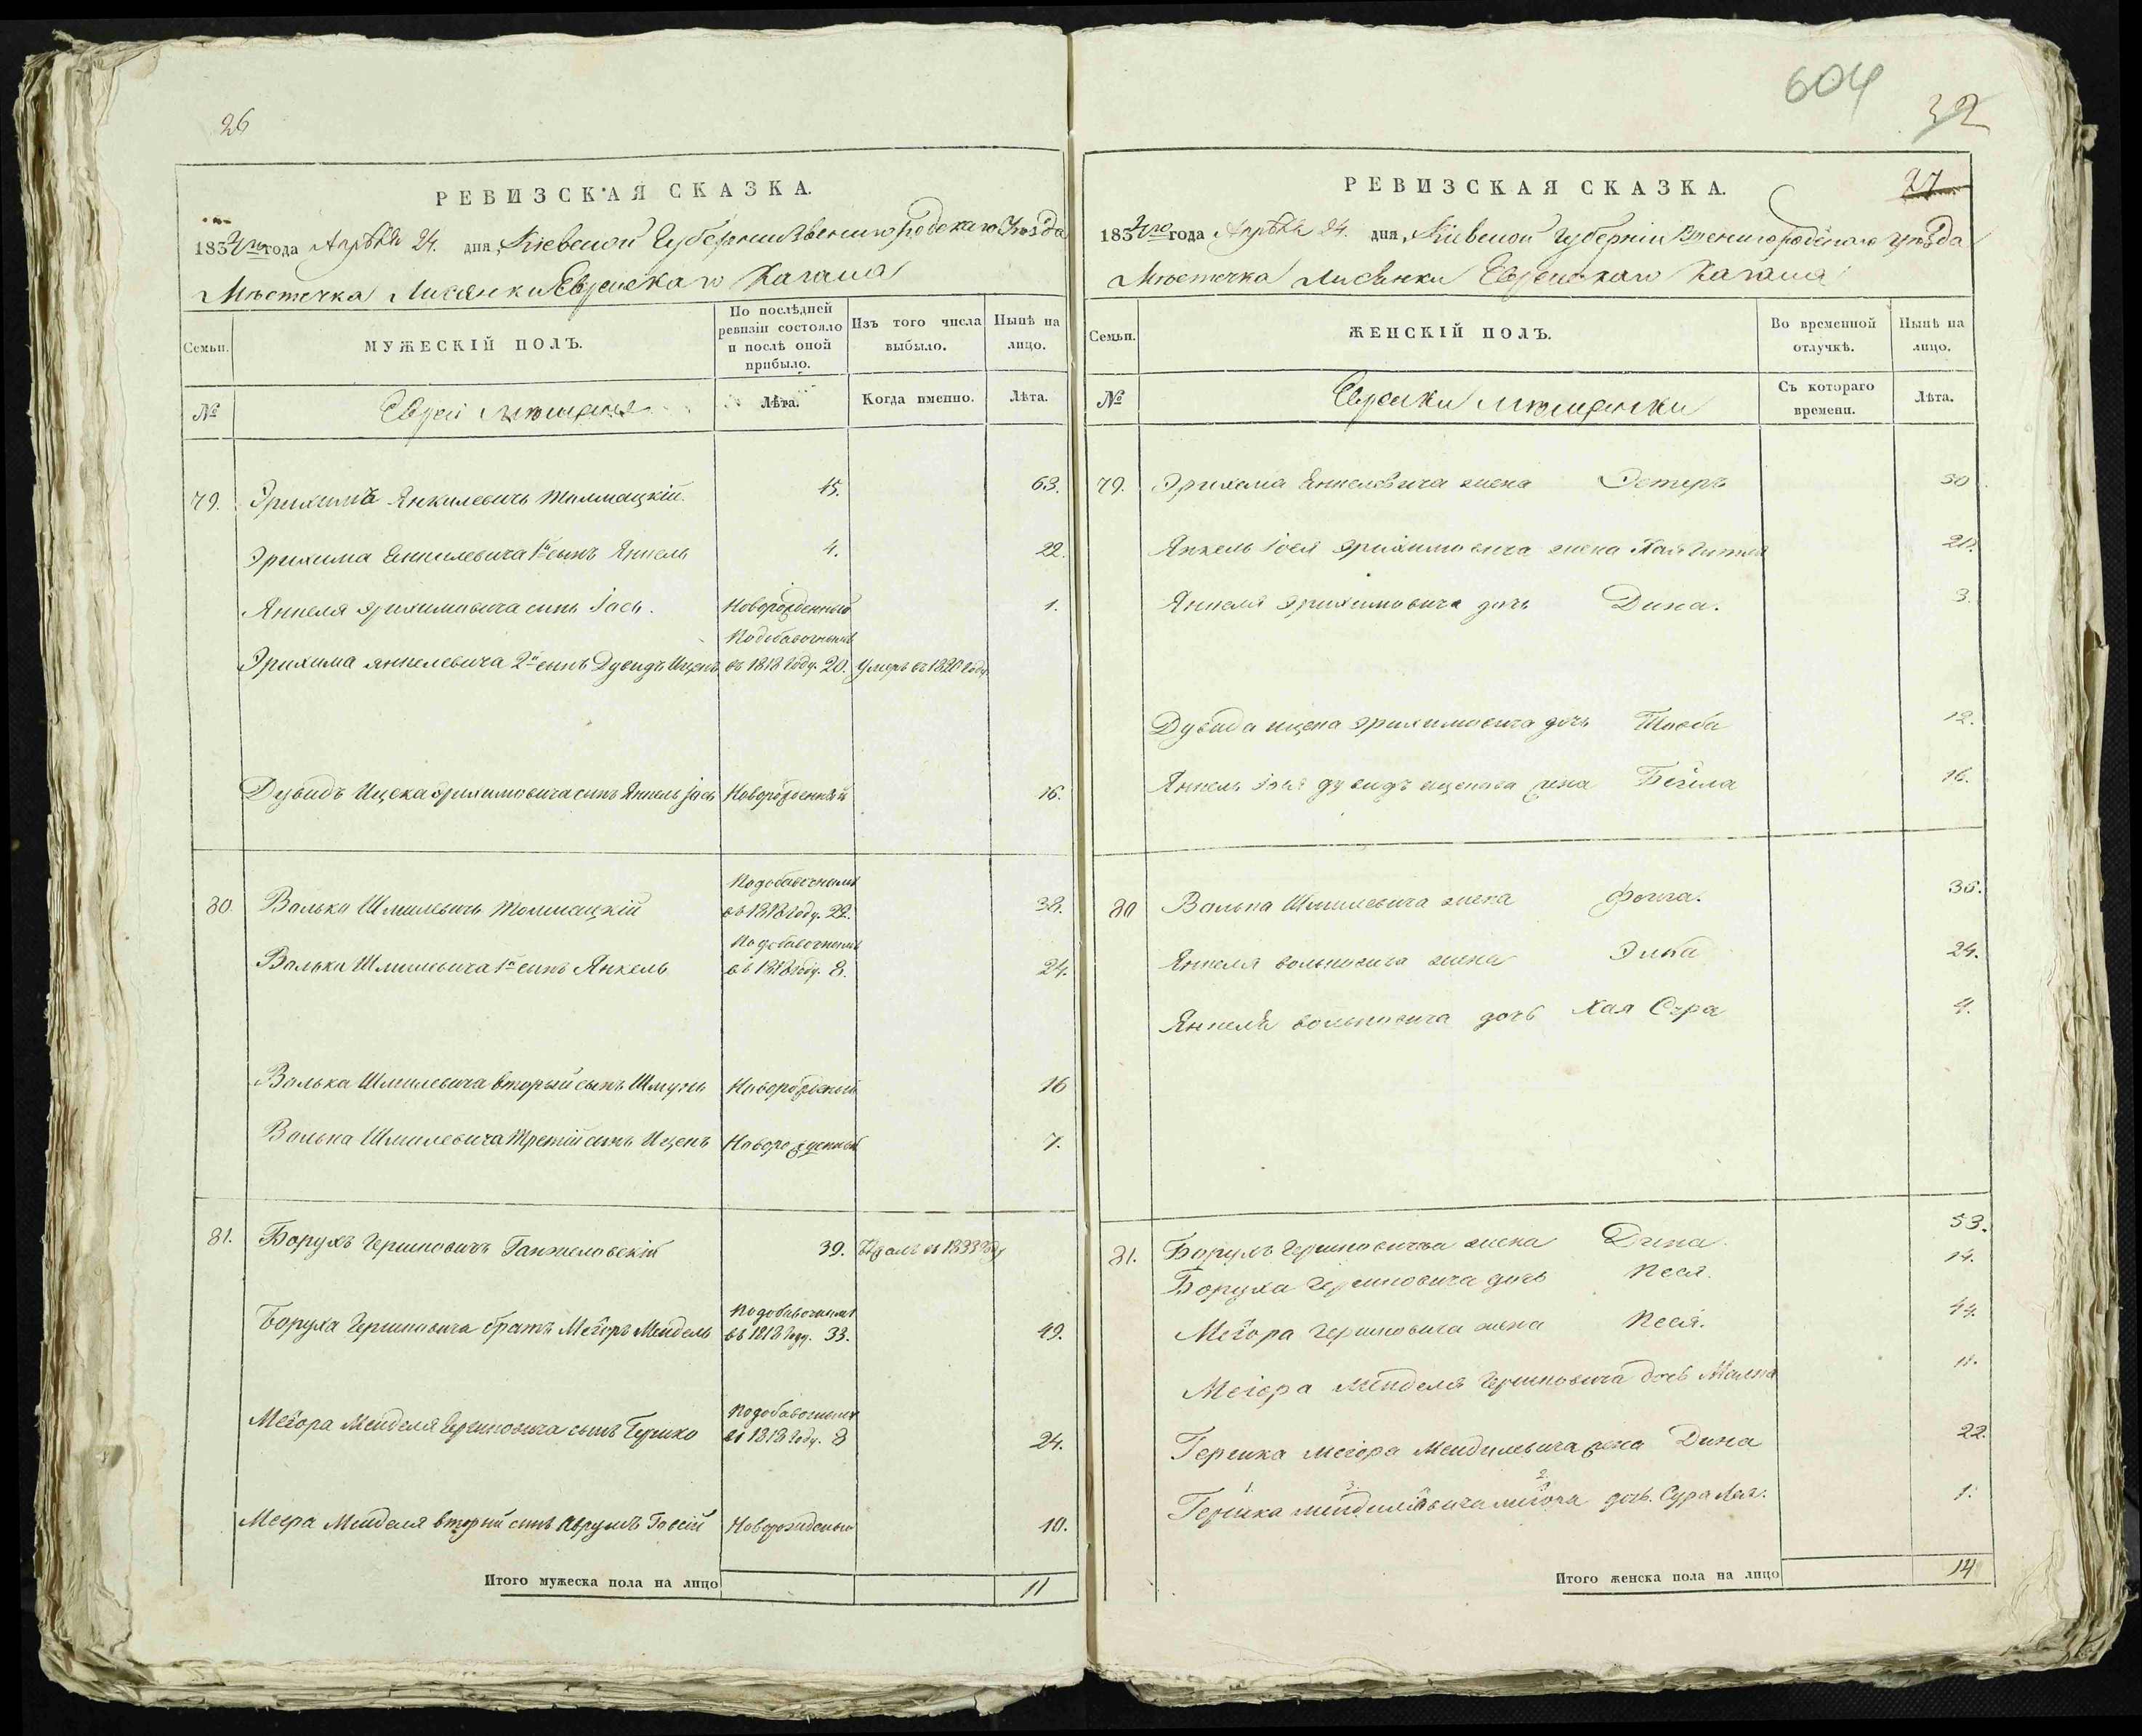 26
РЕВИЗСКАЯ СКАЗКА.
1834го года Апрѣля 24. дня, Кіевской Губерніи Звенигородскаго Уѣзда
Мѣстечка Лисянки Еврейскаго Кагала
Семьи.
МУЖЕСКІЙ ПОЛЪ.
По послѣдней ревизіи состояло и послѣ оной прибыло.
Изъ того числа выбыло.
Нынѣ на лицо.
№
Евреи мѣщане
Лѣта.
Когда именно.
Лѣта.
79. Эрихимъ Янкилевичъ Толмацкій 45. 63.
Эрихима Янкилевича 1й сынъ Янкель 4. 22.
Янкеля Эрихимовича сынъ Іось. Новорожденный 1.
Подобавочнымъ
Эрихима Янкелевича 2й сынъ Дувидъ Ицекъ въ 1818 году. 20. Умеръ въ 1820 году
Дувидъ Ицека Эрихимовича сынъ Янкель Іось Новорожденный 16.
Подобавочнымъ
80 Волько Шмилевичъ Толмацкій въ 1818 году. 22. 38.
Подобавочнымъ
Волька Шмилевича 1й сынъ Янкель въ 1818 году. 8. 24.
Волька Шмилевича вторый сынъ Шмуль Новорожденный 16
Волька Шмилевича Третій сынъ Ицекъ Новорожденный 7.
81. Борухъ Гершковичъ 39. въ 1833 году
Подобавочнымъ
Боруха Гершковича братъ Меіоръ Мендель въ 1818 году. 33. 49.
Подобавочнымъ
Меіора Менделя Гершковича сынъ Гершко въ 1818 году. 8 24.
Меера Менделя вторый сынъ Аврумъ Новорожденый 10.
Итого мужеска пола на лицо 11
604
32
27
РЕВИЗСКАЯ СКАЗКА.
1834го года Апрѣля 24. дня, Кіевской Губерніи Звенигородскаго уѣзда
Мѣстечка Лисянки Еврейскаго Кагала
Семьи.
ЖЕНСКІЙ ПОЛЪ.
Во временной отлучкѣ.
Нынѣ на лицо.
№
Еврейки мѣщанки
Съ котораго времени.
Лѣта.
79. Эрихима Янкелевича жена Эстеръ 50
Янкель Іося Эрихимовича жена Хая Гитля 21.
Янкеля Эрихимовича дочь Дина. 3.
Дувида Ицека Эрихимовича дочь Шовба 12.
Янкель Іося Дувидъ Ицекова жена Бейла 16.
80 Волька Шмилевича жена 36.
Янкеля Вольковича жена Элка 24.
Янкеля Вольковича дочь Хая Сура 4.
81. Борухъ Гершковича жена Дина 53.
Боруха Гершковича дочь Песя. 14.
Меіора Гершковича жена Песя. 44.
Меіора Менделя Гершковича дочь Малка 11.
Гершка Меіора Менделевича жена Дина 22.
Гершка дочь. Сура Лея. 1.
Итого женска пола на лицо 14